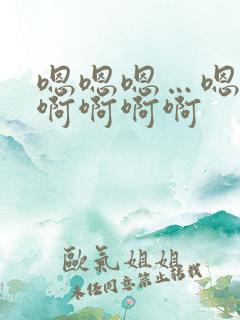 嗯嗯嗯…嗯
啊啊啊啊
歐氣姐姐
未经同意禁止转载